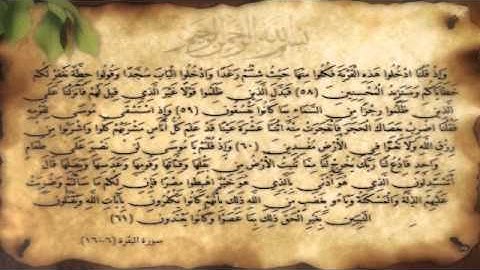 بسم الله الرحمن الرحيم
وَإِذْ قُلْنَا ادْخُلُوا هَذِهِ الْقَرْيَةَ فَكُلُوا مِنْهَا حَيْثُ شِئْتُمْ رَغَدًا وَادْخُلُوا الْبَابَ سُجَّدًا وَقُولُوا حِطَّةٌ نَغْفِرْ لَكُمْ
خَطَايَاكُمْ وَسَنَزِيدُ الْمُحْسِنِينَ (٥٨) فَبَدَّلَ الَّذِينَ ظَلَمُوا قَوْلًا غَيْرَ الَّذِي قِيلَ لَهُمْ فَأَنْزَلْنَا عَلَى
الَّذِينَ ظَلَمُوا رِجْزًا مِنَ السَّمَاءِ بِمَا كَانُوا يَفْسُقُونَ (٥٩) وَإِذِ اسْتَسْقَى مُوسَى لِقَوْمِهِ
فَقُلْنَا اضْرِبْ بِعَصَاكَ الْحَجَرَ فَانْفَجَرَتْ مِنْهُ اثْنَتَا عَشْرَةَ عَيْنًا قَدْ عَلِمَ كُلُّ أُنَاسٍ مَشْرَبَهُمْ كُلُوا وَاشْرَبُوا مِنْ
رِزْقِ اللَّهِ وَلَا تَعْثَوْا فِي الْأَرْضِ مُفْسِدِينَ (٦٠) وَإِذْ قُلْتُمْ يَا مُوسَى لَنْ نَصْبِرَ عَلَى طَعَامٍ
وَاحِدٍ فَادْعُ لَنَا رَبَّكَ يُخْرِجْ لَنَا مِمَّا تُنْبِتُ الْأَرْضُ مِنْ بَقْلِهَا وَقِثَّائِهَا وَفُومِهَا وَعَدَسِهَا وَبَصَلِهَا قَالَ
أَتَسْتَبْدِلُونَ الَّذِي هُوَ أَدْنَى بِالَّذِي هُوَ خَيْرٌ اهْبِطُوا مِصْرًا فَإِنَّ لَكُمْ مَا سَأَلْتُمْ وَضُرِبَتْ
عَلَيْهِمُ الذِّلَّةُ وَالْمَسْكَنَةُ وَبَاءُو بِغَضَبٍ مِنَ اللَّهِ ذَلِكَ بِأَنَّهُمْ كَانُوا يَكْفُرُونَ بِآيَاتِ اللَّهِ وَيَقْتُلُونَ
النَّبِيِّينَ بِغَيْرِ الْحَقِّ ذَلِكَ بِمَا عَصَوْا وَكَانُوا يَعْتَدُونَ (٦١)
سورة البقرة